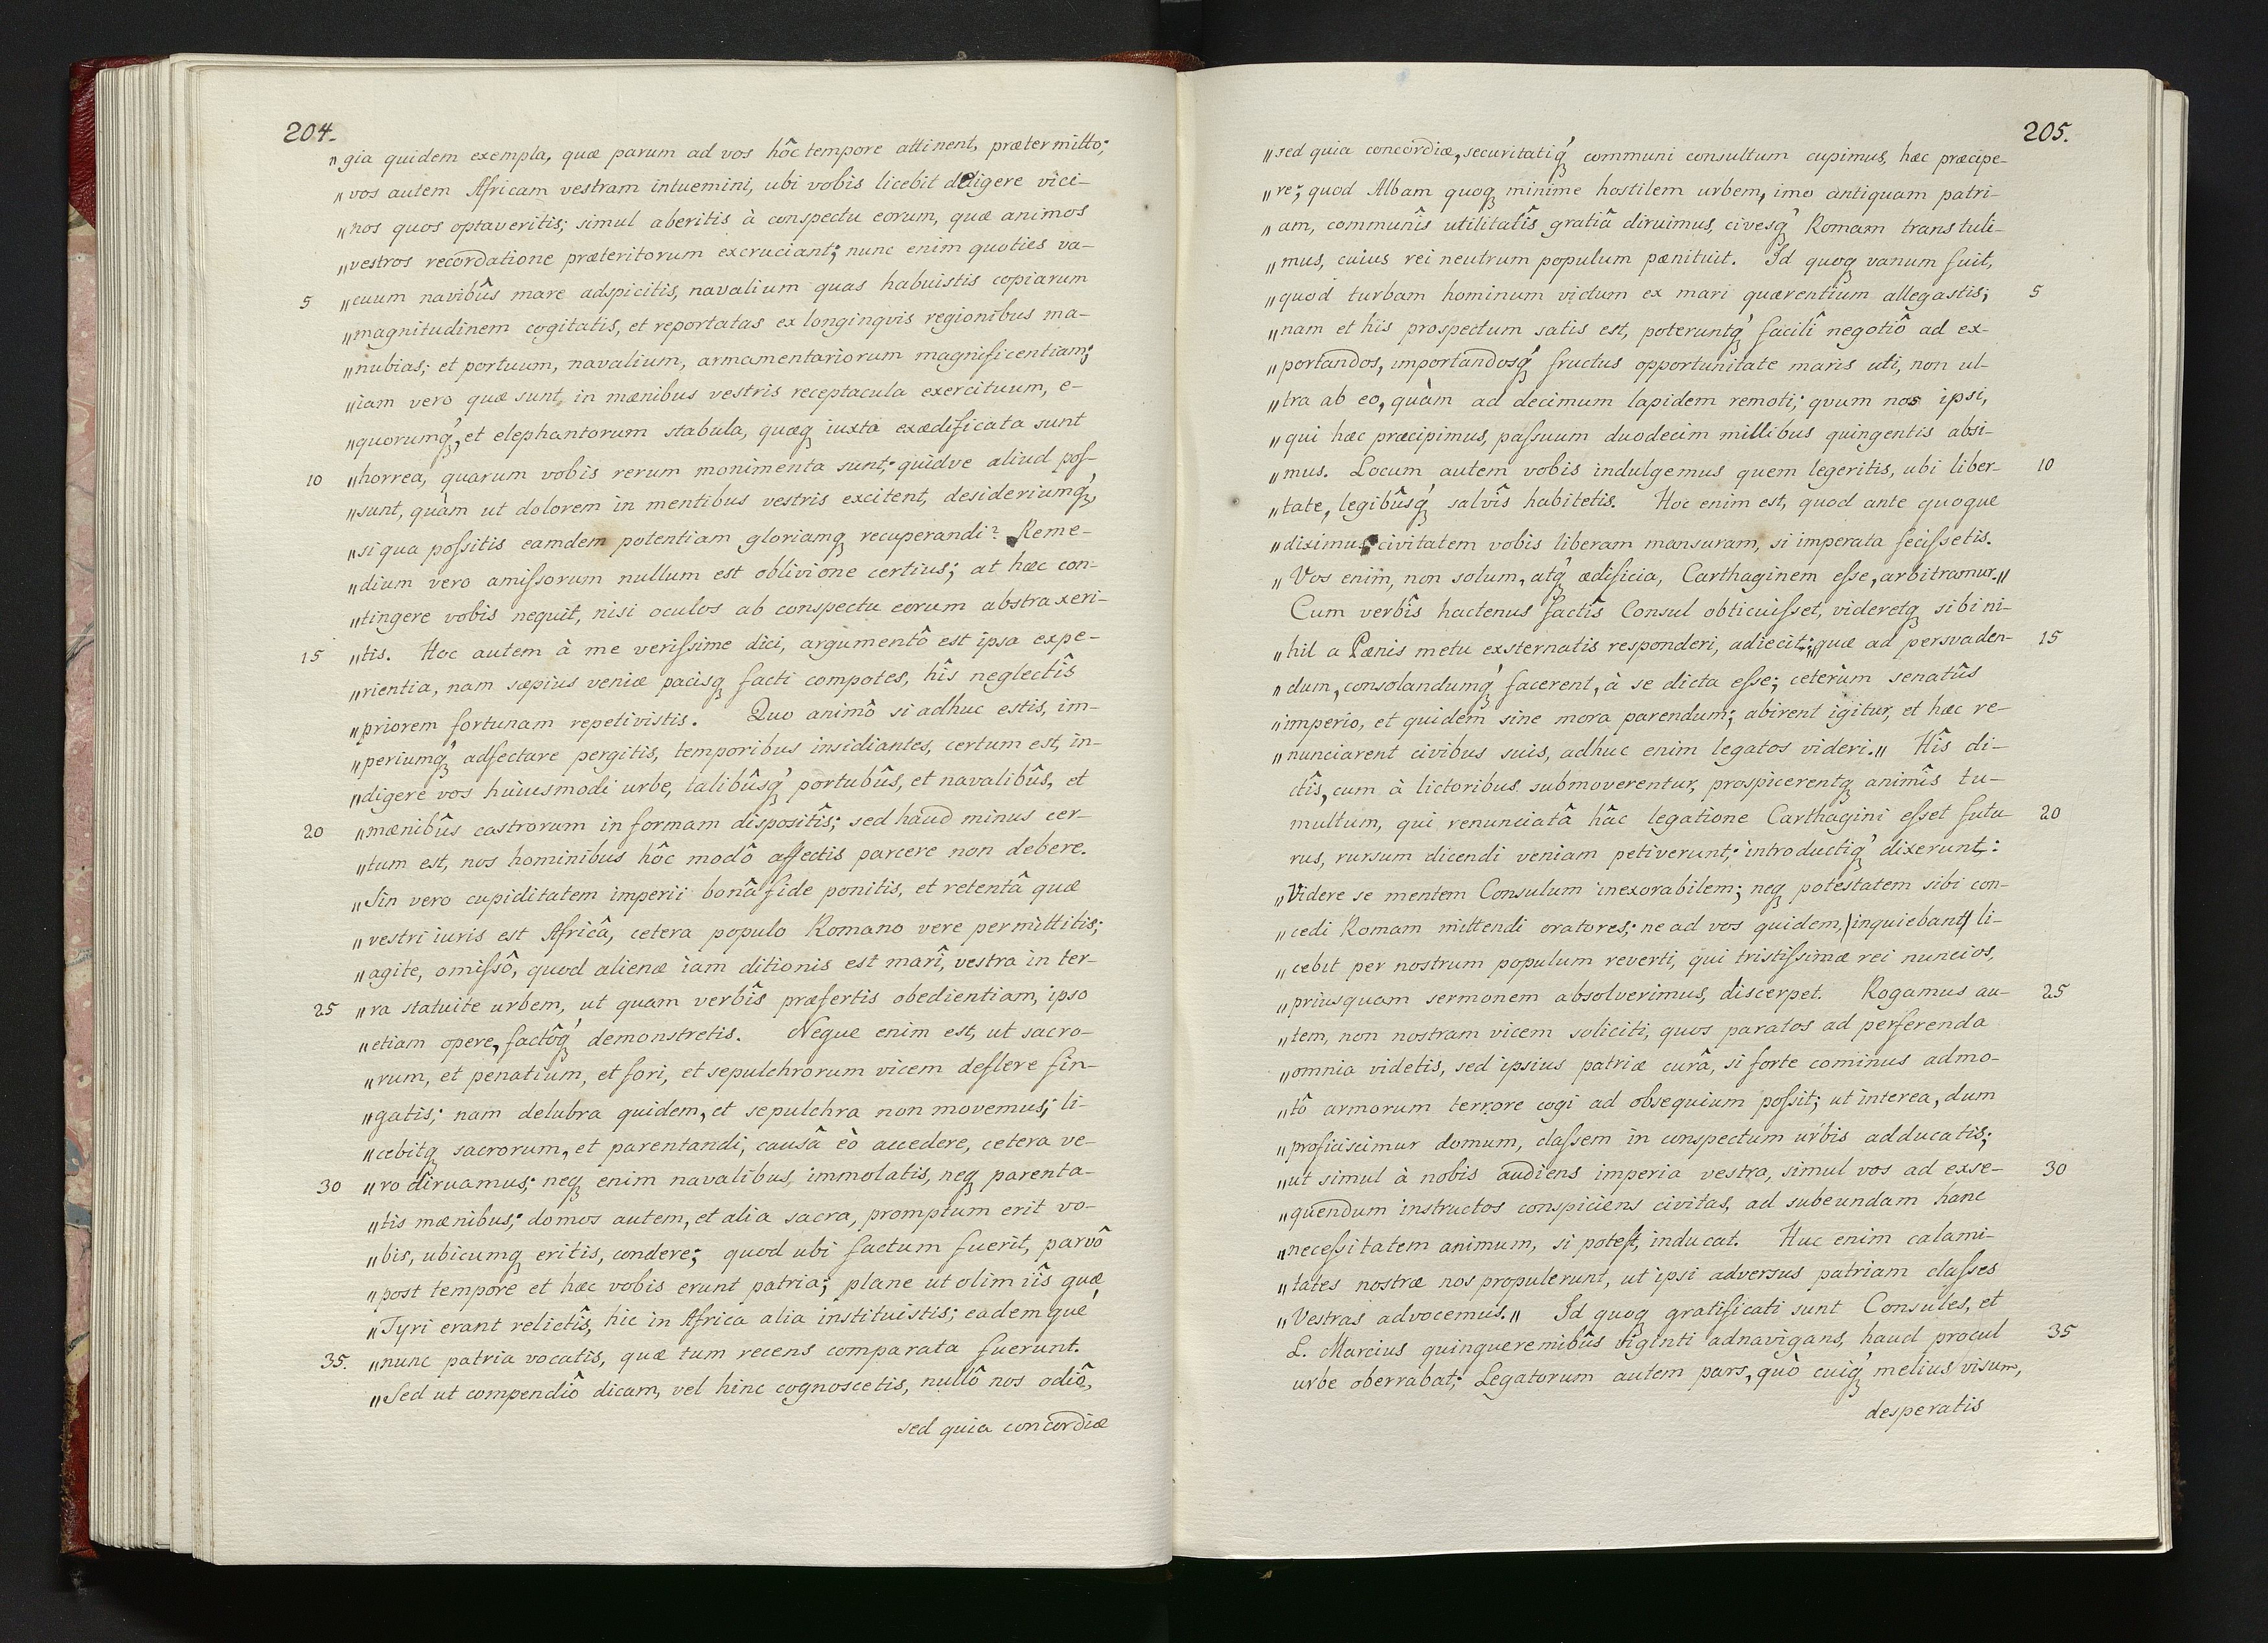 204.
„gia quidem exempla, quæ parum ad vos hôc tempore attinent, prætermitto;
„vos autem Africam vestram intuemini, ubi vobis licebit deligere vici-
„nos quos optaveritis; simul aberitis à conspectu eorum, quæ animos
„vestros recordatione præteritorum excruciant; nunc enim quoties va-
5 „cuum navibûs mare adspicitis, navalium quas habuistis copiarum
„magnitudinem cogitatis, et reportatas ex longinqvis regionibus ma-
„nubias; et portuum, navalium, armamentariorum magnificentiam;
„iam vero quæ sunt in mænibus vestris receptacula exercituum, e-
„quorumq́ꝫ, et elephantorum stabula, quæqꝫ iuxta exædificata sunt
10 „horrea, quarum vobis rerum monimenta sunt; quidve aliud pos-
„sunt, quàm ut dolorem in mentibus vestris excitent, desideriumq́ꝫ,
„si qua poſsitis eamdem potentiam gloriamqꝫ recuperandi? Reme-
„dium vero amiſsorum nullum est oblivione certius; at hæc con-
„tingere vobis nequit, nisi oculos ab conspectu eorum abstraxeri-
15 „tis. Hoc autem à me veriſsime dici, argumentô est ipsa expe-
„rientia, nam sæpius veniæ pacisqꝫ facti compotes, hîs neglectîs
„priorem fortunam repetivistis. Quo animô si adhuc estis, im-
„periumq́ꝫ adfectare pergitis, temporibus insidiantes, certum est, in-
„digere vos huiusmodi urbe, talibûsq́ꝫ portubûs, et navalibûs, et
20 „mænibûs castrorum in formam dispositîs; sed haud minus cer-
„tum est, nos hominibus hôc modô affectis parcere non debere.
„Sin vero cupiditatem imperii bonâ fide ponitis, et retentâ quæ
„vestri iuris est Africâ, cetera populo Romano vere permittitis;
„agite, omiſsô, quod alienæ iam ditionis est marî, vestra in ter-
25 „ra statuite urbem, ut quam verbîs præfertis obedientiam, ipso
„etiam opere, factôq́ꝫ demonstretis. Neque enim est, ut sacro-
„rum, et penatium, et fori, et sepulchrorum vicem deflere fin-
„gatis; nam delubra quidem, et sepulchra non movemus; li-
„cebitqꝫ sacrorum, et parentandi, causâ eò accedere, cetera ve-
30 „ro diruamus; neqꝫ enim navalibus, immolatis, neqꝫ parenta-
„tis mænibus; domos autem, et alia sacra, promptum erit vo-
„bis, ubicumqꝫ eritis, condere; quod ubi factum fuerit, parvô
„post tempore et hæc vobis erunt patria; plane ut olim iîs quæ
„Tyri erant relictîs, hic in Africa alia instituistis; eademque
35. „nunc patria vocatis, quæ tum recens comparata fuerunt.
„Sed ut compendiô dicam, vel hinc cognoscetis, nullô nos odiô,
sed quia concordiæ
205.
„sed quia concordiæ, securitatiq́ꝫ communi consultum cupimus, hæc præcipe-
„re; quod Albam quoqꝫ minime hostilem urbem, imo antiquam patri-
„am, communîs utilitatîs gratiâ diruimus, civesq́ꝫ Romam transtuli-
„mus, cuius rei neutrum populum pænituit. Id quoqꝫ vanum fuit,
„quod turbam hominum victum ex mari quærentium allegastis; 5
„nam et hîis prospectum satis est, poteruntq́ꝫ facilî negotiô ad ex-
„portandos, importandosq́ꝫ fructus opportunitate maris uti, non ul-
„tra ab eo, quàm ad decimum lapidem remoti; qvum nos ipsi,
„qui hæc præcipimus, paſsuum duodecim millibus quingentis absi-
„mus. Locum autem vobis indulgemus quem legeritis, ubi liber- 10
„tate, legibûsq́ꝫ salvîs habitetis. Hoc enim est, quod ante quoque
„diximus, civitatem vobis liberam mansuram, si imperata feciſsetis.
„Vos enim, non solum, atq́ꝫ ædificia, Carthaginem eſse, arbitramur.„
Cum verbîs hactenus factîs Consul obticuiſset, videretqꝫ sibi ni-
„hil a Pænis metu exsternatis responderi, adiecit: „quæ ad persvaden- 15
„dum, consolandumq́ꝫ facerent, à se dicta eſse; ceterùm senatûs
„imperio, et quidem sine mora parendum; abirent igitur, et hæc re-
„nunciarent civibus suis, adhuc enim legatos videri.„ Hîs di-
ctîs, cum à lictoribus submoverentur, prospicerentqꝫ animîs tu-
multum, qui renunciatâ hâc legatione Carthagini eſset futu- 20
rus, rursum dicendi veniam petiverunt; introductiq́ꝫ dixerunt:
„Videre se mentem Consulum inexorabilem; neqꝫ potestatem sibi con-
„cedi Romam mittendi oratores; ne ad vos quidem, /inquiebant/ li-
„cebit per nostrum populum reverti, qui tristiſsimæ rei nuncios,
„priusquam sermonem absolverimus, discerpet. Rogamus au- 25
„tem, non nostram vicem soliciti, quos paratos ad perferenda
„omnia videtis, sed ipsius patriæ curâ, si forte cominus admo-
„tô armorum terrore cogi ad obsequium poſsit; ut interea, dum
„proficiscimur domum, claſsem in conspectum urbis adducatis;
„ut simul à nobis audiens imperia vestra, simul vos ad exse- 30
„quendum instructos conspiciens civitas, ad subeundam hanc
„neceſsitatem animum, si potest, inducat. Huc enim calami-
„tates nostræ nos propulerunt, ut ipsi adversus patriam claſses
„Vestras advocemus.„ Id quoqꝫ gratificati sunt Consules, et
L. Marcius quinqueremibûs viginti adnavigans, haud procul 35
urbe oberrabat; Legatorum autem pars, quò cuiq́ꝫ melius visum,
desperatis